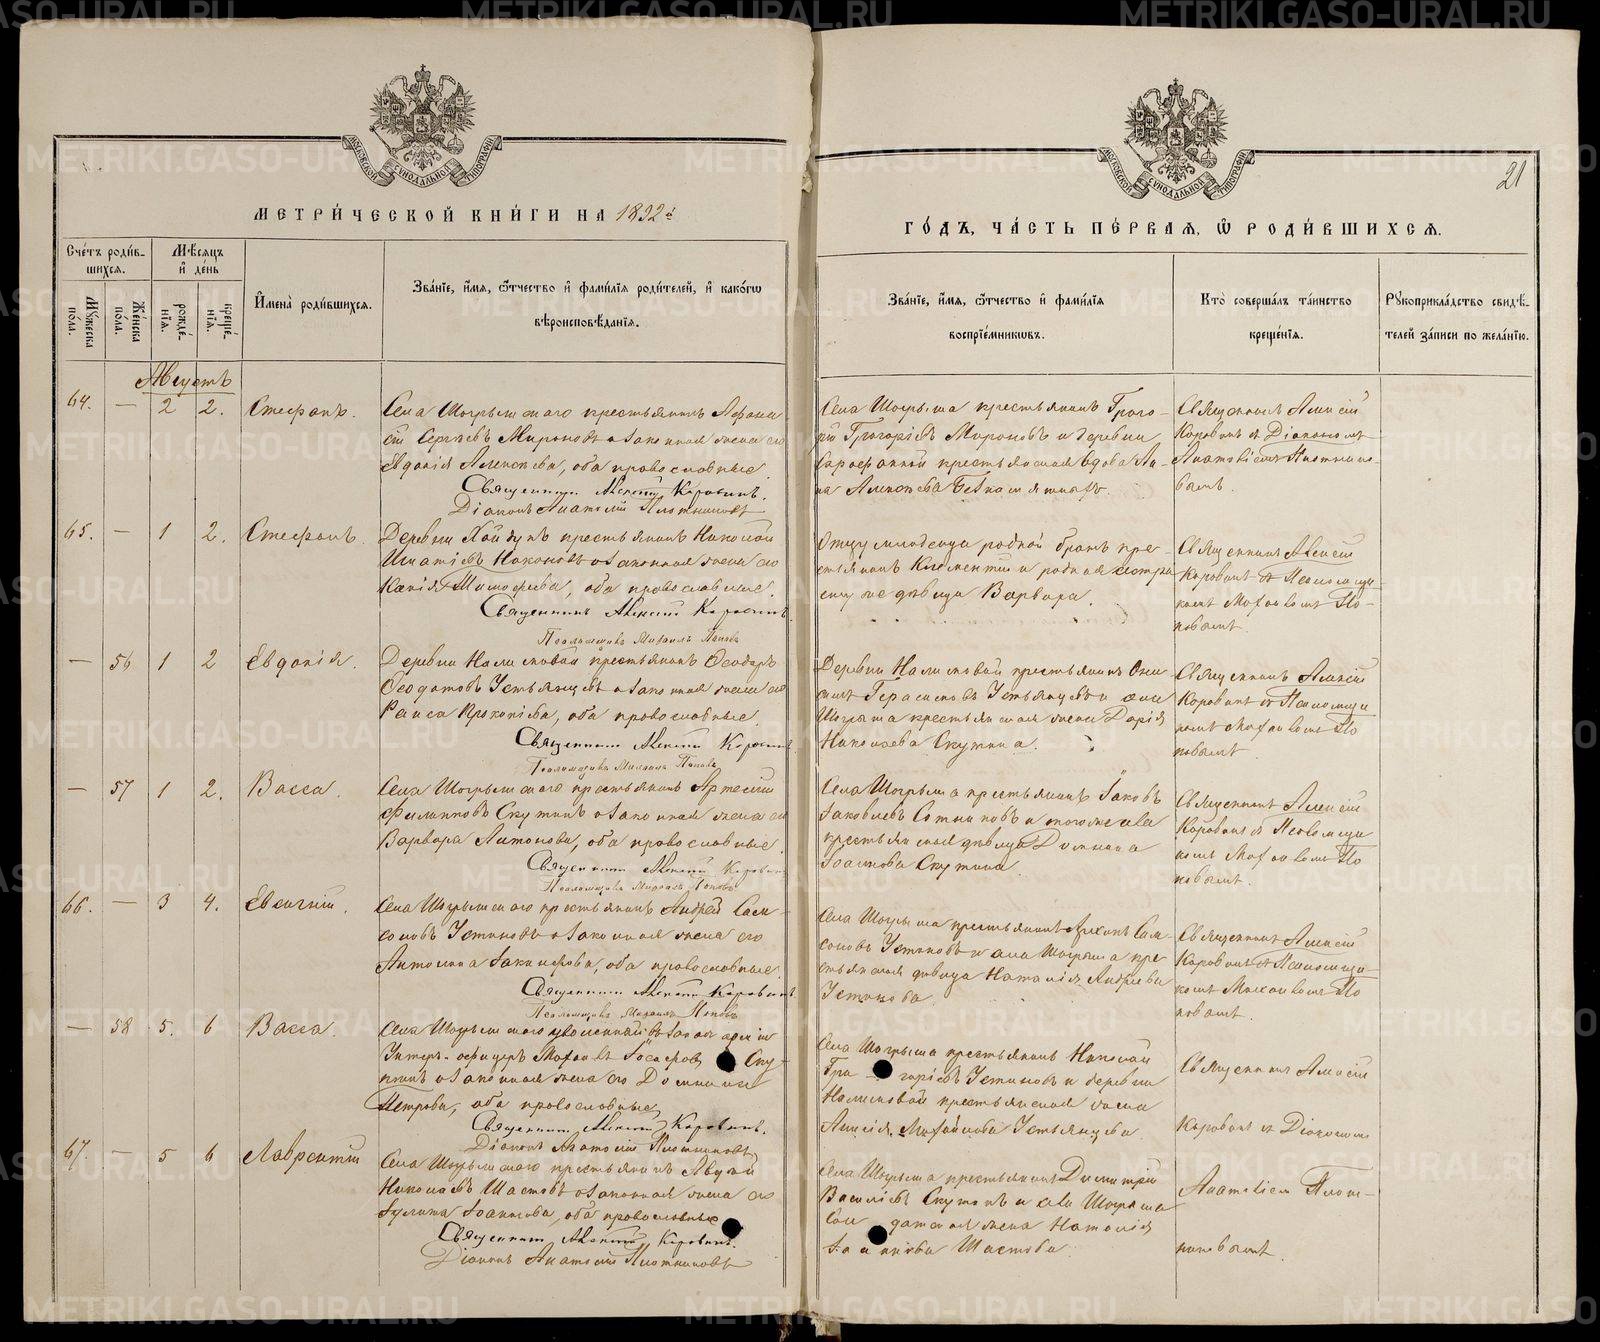 МЕТРИ́ЧЕСКОЙ КНИ́ГИ НА 1892й
ГО́ДЪ, ЧА́СТЬ ПЕ́РВАЯ, Ѡ РОДИ́ВШИХСЯ.
21
МОСКОВСКОЙ СѴНОДАЛЬНОЙ ТИПОГРАФІИ
МОСКОВСКОЙ СѴНОДАЛЬНОЙ ТИПОГРАФІИ
Сче́тъ роди́в-
шихся.
Мѣ́сяцъ
и҆ де́нь
Му́жеска по́ла.
Же́нска по́ла.
рожде́-
нїя.
креще́-
нїя.
И҆мена̀ роди́вшихся.
Зва́нїе, и҆́мя, ѻ҆́тчество и҆ фами́лїя роди́телей, и҆ како́гѡ
вѣроисповѣ́данїя.
Зва́нїе, и҆́мя, ѻ҆́тчество и҆ фами́лїя
воспрїе́мникѡвъ.
Кто̀ соверша́лъ та́инство
креще́нїя.
Рꙋкоприкла́дство свидѣ́-
телей за́писи по жела́нїю.
Августъ
64. — 2 2. Стефанъ.
Села Шогрышскаго крестьянинъ Афана
сій Сергѣевъ Мироновъ и законная жена его
Евдокія Алексѣева, оба православные.
Священникъ Алексій Коровинъ.
Діаконъ Анатолій Плотниковъ
Села Шогрыша крестьянинъ Григо-
рій Григорьевъ Мироновъ и деревни
крестьянская вдова Ан-
на Алексѣева
Священникъ Алексій
Коровинъ съ Діакономъ
Анатоліемъ Плотнико-
вымъ.
65. — 1 2. Стефанъ.
Деревни крестьянинъ Николай
Игнатьевъ и законная жена его
Тимофеева, оба православные.
Священникъ Алексій Коровинъ.
Псаломщикъ Михаилъ Поповъ
Отцу младенца родной братъ кре-
стьянинъ Климентій и родная сестра
ему же дѣвица Варвара.
Священникъ Алексій
Коровинъ съ Псаломщи-
комъ Михаиломъ По-
повымъ
— 56 1 2 Евдокія.
Деревни Налимовой крестьянинъ Ѳеодоръ
Ѳеодотовъ Устьянцевъ и законная жена его
Раиса Прокопіева, оба православные.
Священникъ Алексій Коровинъ
Псаломщикъ Михаилъ Поповъ
Деревни Налимовой крестьянинъ Они
симъ Герасимовъ Устьянцевъ и села
Шогрыша крестьянская жена Дарія
Николаева Скутина.
Священникъ Алексій
Коровинъ съ Псаломщи
комъ Михаиломъ По
повымъ
— 57 1 2. Васса.
Села Шогрышскаго крестьянинъ Артемій
Филипповъ Скутинъ и законная жена его
Варвара Антонова, оба православные.
Священникъ Алексій Коровинъ
Псаломщикъ Михаилъ Поповъ
Села Шогрыша крестьянинъ Іаковъ
Іаковлевъ Сотниковъ и тогоже села
крестьянская дѣвица Домнина
Іоаннова Скутина.
Священникъ Алексій
Коровинъ съ Псаломщи
комъ Михаиломъ По
повымъ.
66. — 3 4. Евгеній.
Села Шогрышскаго крестьянинъ Андрей Сам-
соновъ Устиновъ и законная жена его
Антонина, оба православные.
Священникъ Алексій Коровинъ
Псаломщикъ Михаилъ Поповъ
Села Шогрыша крестьянинъ Сам-
соновъ Устиновъ и села Шогрыша кре
стьянская дѣвица Наталія Андреева
Устинова.
Священникъ Алексій
Коровинъ съ Псаломщи-
комъ Михаиломъ По
повымъ.
— 58 5. 6 Васса.
Села Шогрышскаго уволенный въ запасъ арміи
Унтеръ-офицеръ Скут-
инъ и законная жена его Домника
Петрова, оба православные
Священникъ Алексій Коровинъ.
Діаконъ Анатолій Плотниковъ
Села Шогрыша крестьянинъ Николай
Гри горіевъ Устиновъ и деревни
Налимовой крестьянская жена
Михайлова Устьянцева
Священникъ Алексій
Коровинъ съ Діакономъ
67. — 5 6 Лаврентій
Села Шогрышскаго крестьянинъ
Николаевъ Шастовъ и законная жена его
Іулита Іоаннова, оба православные
Священникъ Алексій Коровинъ.
Діаконъ Анатолій Плотниковъ
Села Шогрыша крестьянинъ Димитрій
Василіевъ Скутинъ и села Шогрыша
солдатская жена Наталія
Іоаннова Шастова.
Анатоліемъ Плот-
никовымъ.
METRIKI.GASO-URAL.RU